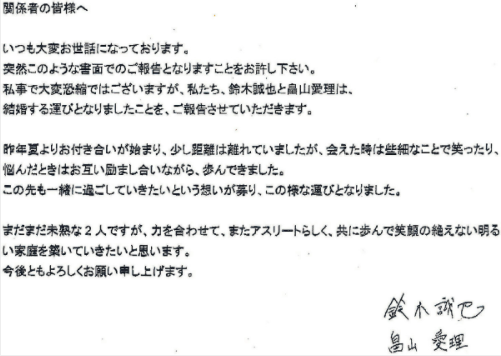 関係者の皆様へ
いつも大変お世話になっております。
突然このような書面でのご報告となりますことをお許し下さい。
私事で大変恐縮ではございますが、私たち、鈴木誠也と畠山愛理は、
結婚する運びとなりましたことを、ご報告させていただきます。
昨年夏よりお付き合いが始まり、少し距離は離れていましたが、会えた時は些細なことで笑ったり、
悩んだときはお互い励まし合いながら、歩んできました。
この先も一緒に過ごしていきたいという想いが募り、この様な運びとなりました。
まだまだ未熟な2人ですが、力を合わせて、またアスリートらしく、共に歩んで笑顔の絶えない明る
い家庭を築いていきたいと思います。
今後ともよろしくお願い申し上げます。
鈴木誠也
畠山愛理